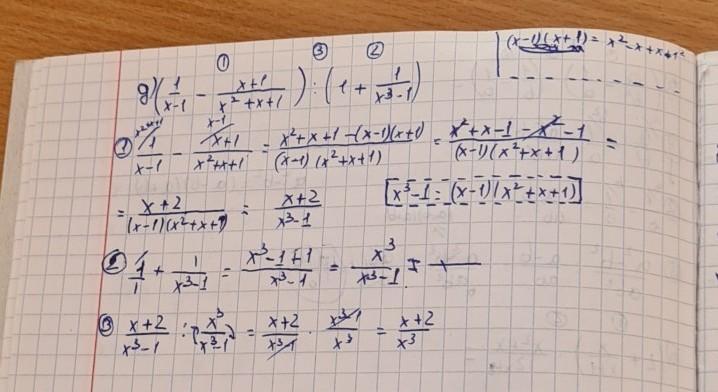 (x-1)(x+1) = x²-x+x+1²
① ③ ②
g) (1/(x-1) - (x+1)/(x²+x+1)) : (1 + 1/(x³-1))
x²+x+1 x-1
① 1/(x-1) - (x+1)/(x²+x+1) = (x²+x+1-(x-1)(x+1))/((x-1)(x²+x+1)) = (x²+x-1-x²-1)/((x-1)(x²+x+1)) =
= (x+2)/((x-1)(x²+x+1)) = (x+2)/(x³-1) [x³-1=(x-1)(x²+x+1)]
② 1/1 + 1/(x³-1) = (x³-1+1)/(x³-1) = x³/(x³-1)
③ (x+2)/(x³-1) : (x³/(x³-1)) = (x+2)/(x³-1) · (x³-1)/x³ = (x+2)/x³